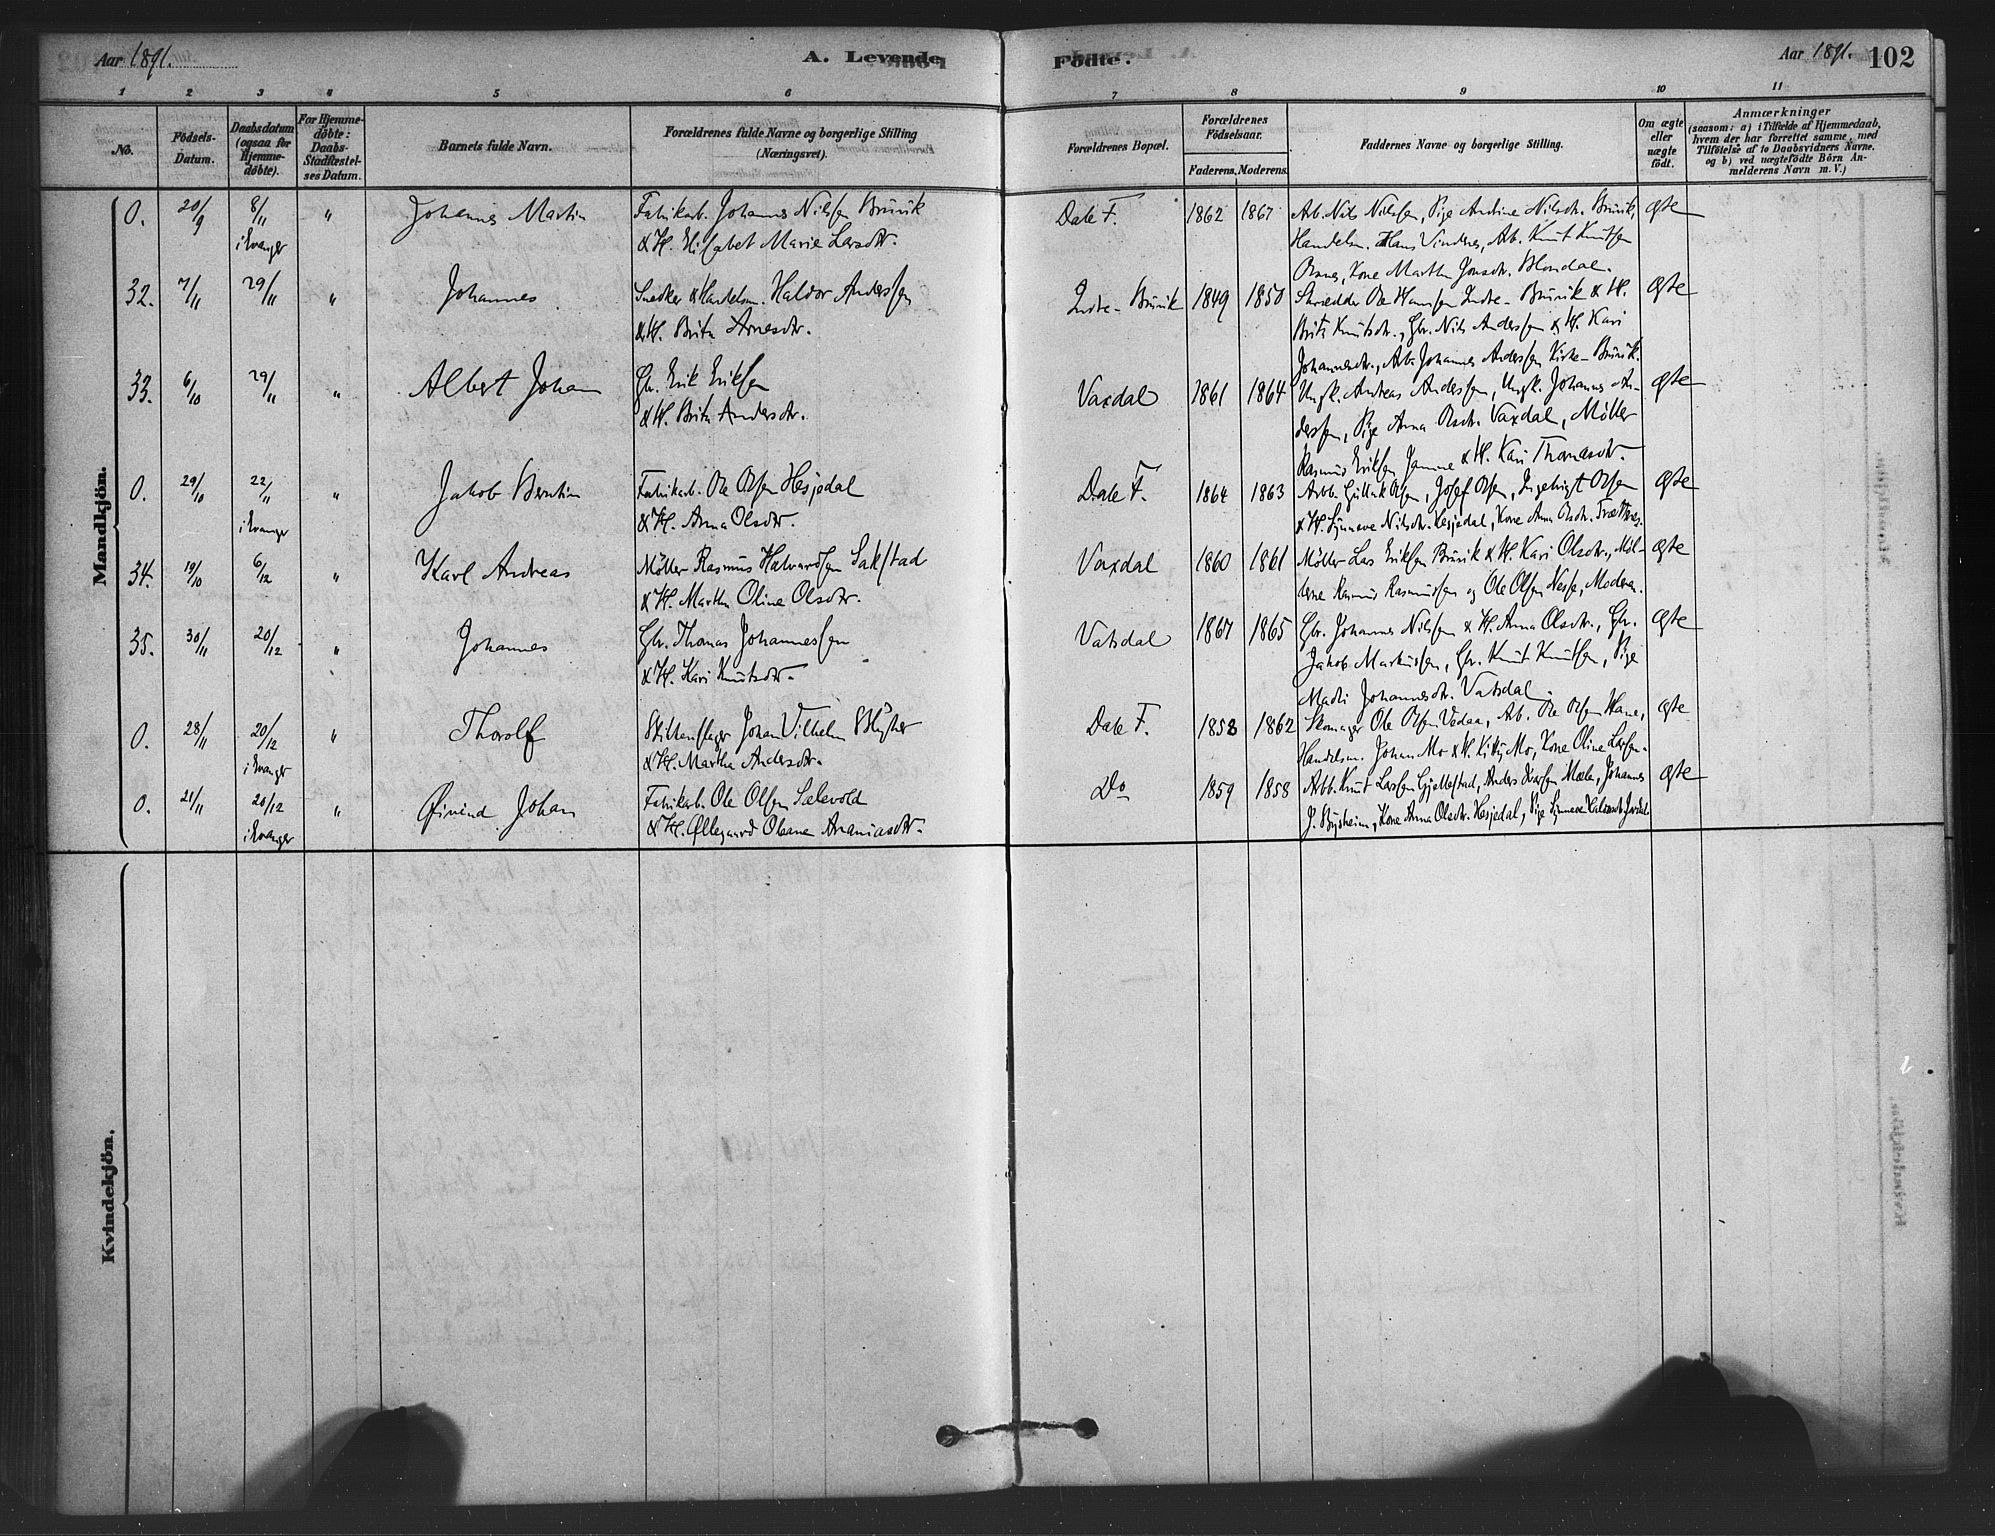 Aar 1891.
A. Levende
Födte.
Aar 1891.
102
1 2 3 4 5 6 7 8 9 10 11
No.
Födsels-
Datum.
Daabsdatum
(ogsaa for
Hjemme-
döbte).
For Hjemme-
döbte:
Daabs-
Stadfæstel-
ses Datum.
Barnets fulde Navn.
Forældrenes fulde Navne og borgerlige Stilling
(Næringsvei).
Forældrenes Bopæl.
Forældrenes
Födselsaar.
Faderens. Moderens.
Faddernes Navne og borgerlige Stilling.
Om ægte
eller
uægte
födt.
Anmærkninger
(saasom: a) i Tilfælde af Hjemmedaab,
hvem der har forrettet samme, med
Tilföielse af to Daabsvidners Navne.
og b) ved uægtefödte Börn An-
melderens Navn m. V.)
Mandkjön.
0. 20/9 8/11 " Johannes Martin Fabrikarb. Johannes Nilssen Bruvik Dale F. 1862 1867 Arb. Nils Nilssen, Pige Andrine Nilsdtr. Bruvik, ægte
i Evanger & H. Elisabet Marie Larsdtr. Handelsm. Hans Vindenes, Arb. Knut Knutsen
Kone Martha Jonsdtr. Blomdal.
32. 7/11 29/11 " Johannes Snedker & Handelsm. Haldor Anderssen Indre-Bruvik 1849 1850 Skrædder Ole Hanssen Indre-Bruvik & H. ægte
& H. Brita Arnesdtr. Brita Knutsdtr., Gbr. Nils Anderssen & H. Kari
Johannesdtr., Arb. Johannes Anderssen Kirke-Bruvik.
33. 6/10 29/11 " Albert Johan Gbr. Erik Eriksen Vaxdal 1861 1864 Ungk. Andreas Anderssen, Ungk. Johannes An- ægte
& H. Brita Andersdtr. derssen, Pige Anna Olsdtr. Vaxdal, Møller
Rasmus Eriksen Jamne & H. Kari Thomasdtr.
0. 29/10 22/11 " Jakob Berntin Fabrikarb. Ole Olsen Hesjedal Dale F. 1864 1863 Arbb. Gullak Olsen, Josef Olsen, Ingebrigt Olsen ægte
i Evanger & H. Anna Olsdtr. & H. Synneve Nilsdtr. Hesjedal, Kone Anna Olsdtr.
34. 19/10 6/12 " Karl Andreas Møller Rasmus Halvardsen Sakstad Vaxdal 1860 1861 Møller Lars Eriksen Bruvik & H. Kari Olsdtr., Møl- ægte
& H. Martha Oline Olsdtr. lerne Rasmus Rasmussen og Ole Olsen Nesse, Moderen.
35. 30/11 20/12 " Johannes Gbr. Thomas Johannessen Vatsdal 1867 1865 Gbr. Johannes Nilssen & H. Anna Olsdtr., Gbr. ægte
& H. Kari Knutsdtr. Jakob Markussen, Gbr. Knut Knutsen, Pige
Marli Johannesdtr. Vatsdal.
0. 28/11 20/12 " Thorolf Blikkenslager Johan Vilhelm Dale F. 1858 1862 Skomager Ole Olsen Vedaa, Arb. Ole Olsen Hane, ægte
i Evanger & H. Martha Andersdtr. Handelsm. Johan Mo & H. Kitty Mo, Kone Oline Larsen.
0. 21/11 20/12 " Øivind Johan Fabrikarb. Ole Olsen Salevold Do 1859 1858 Arbb. Knut Larssen Gjellestad, Anders Mæle, Johannes ægte
i Evanger & H. Ollegaard Oleane Ananiasdtr. J. Bysheim, Kone Anna Olsdtr. Hesjedal, Pige Synneve
Kvindekjön.